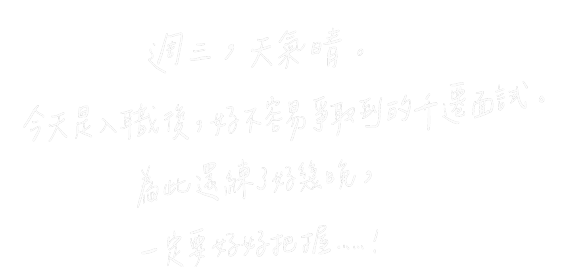 週三，天氣晴。
今天是入職後，好不容易爭取到的干遷面試。
為此還練了好幾晚，
一定要好好把握……！